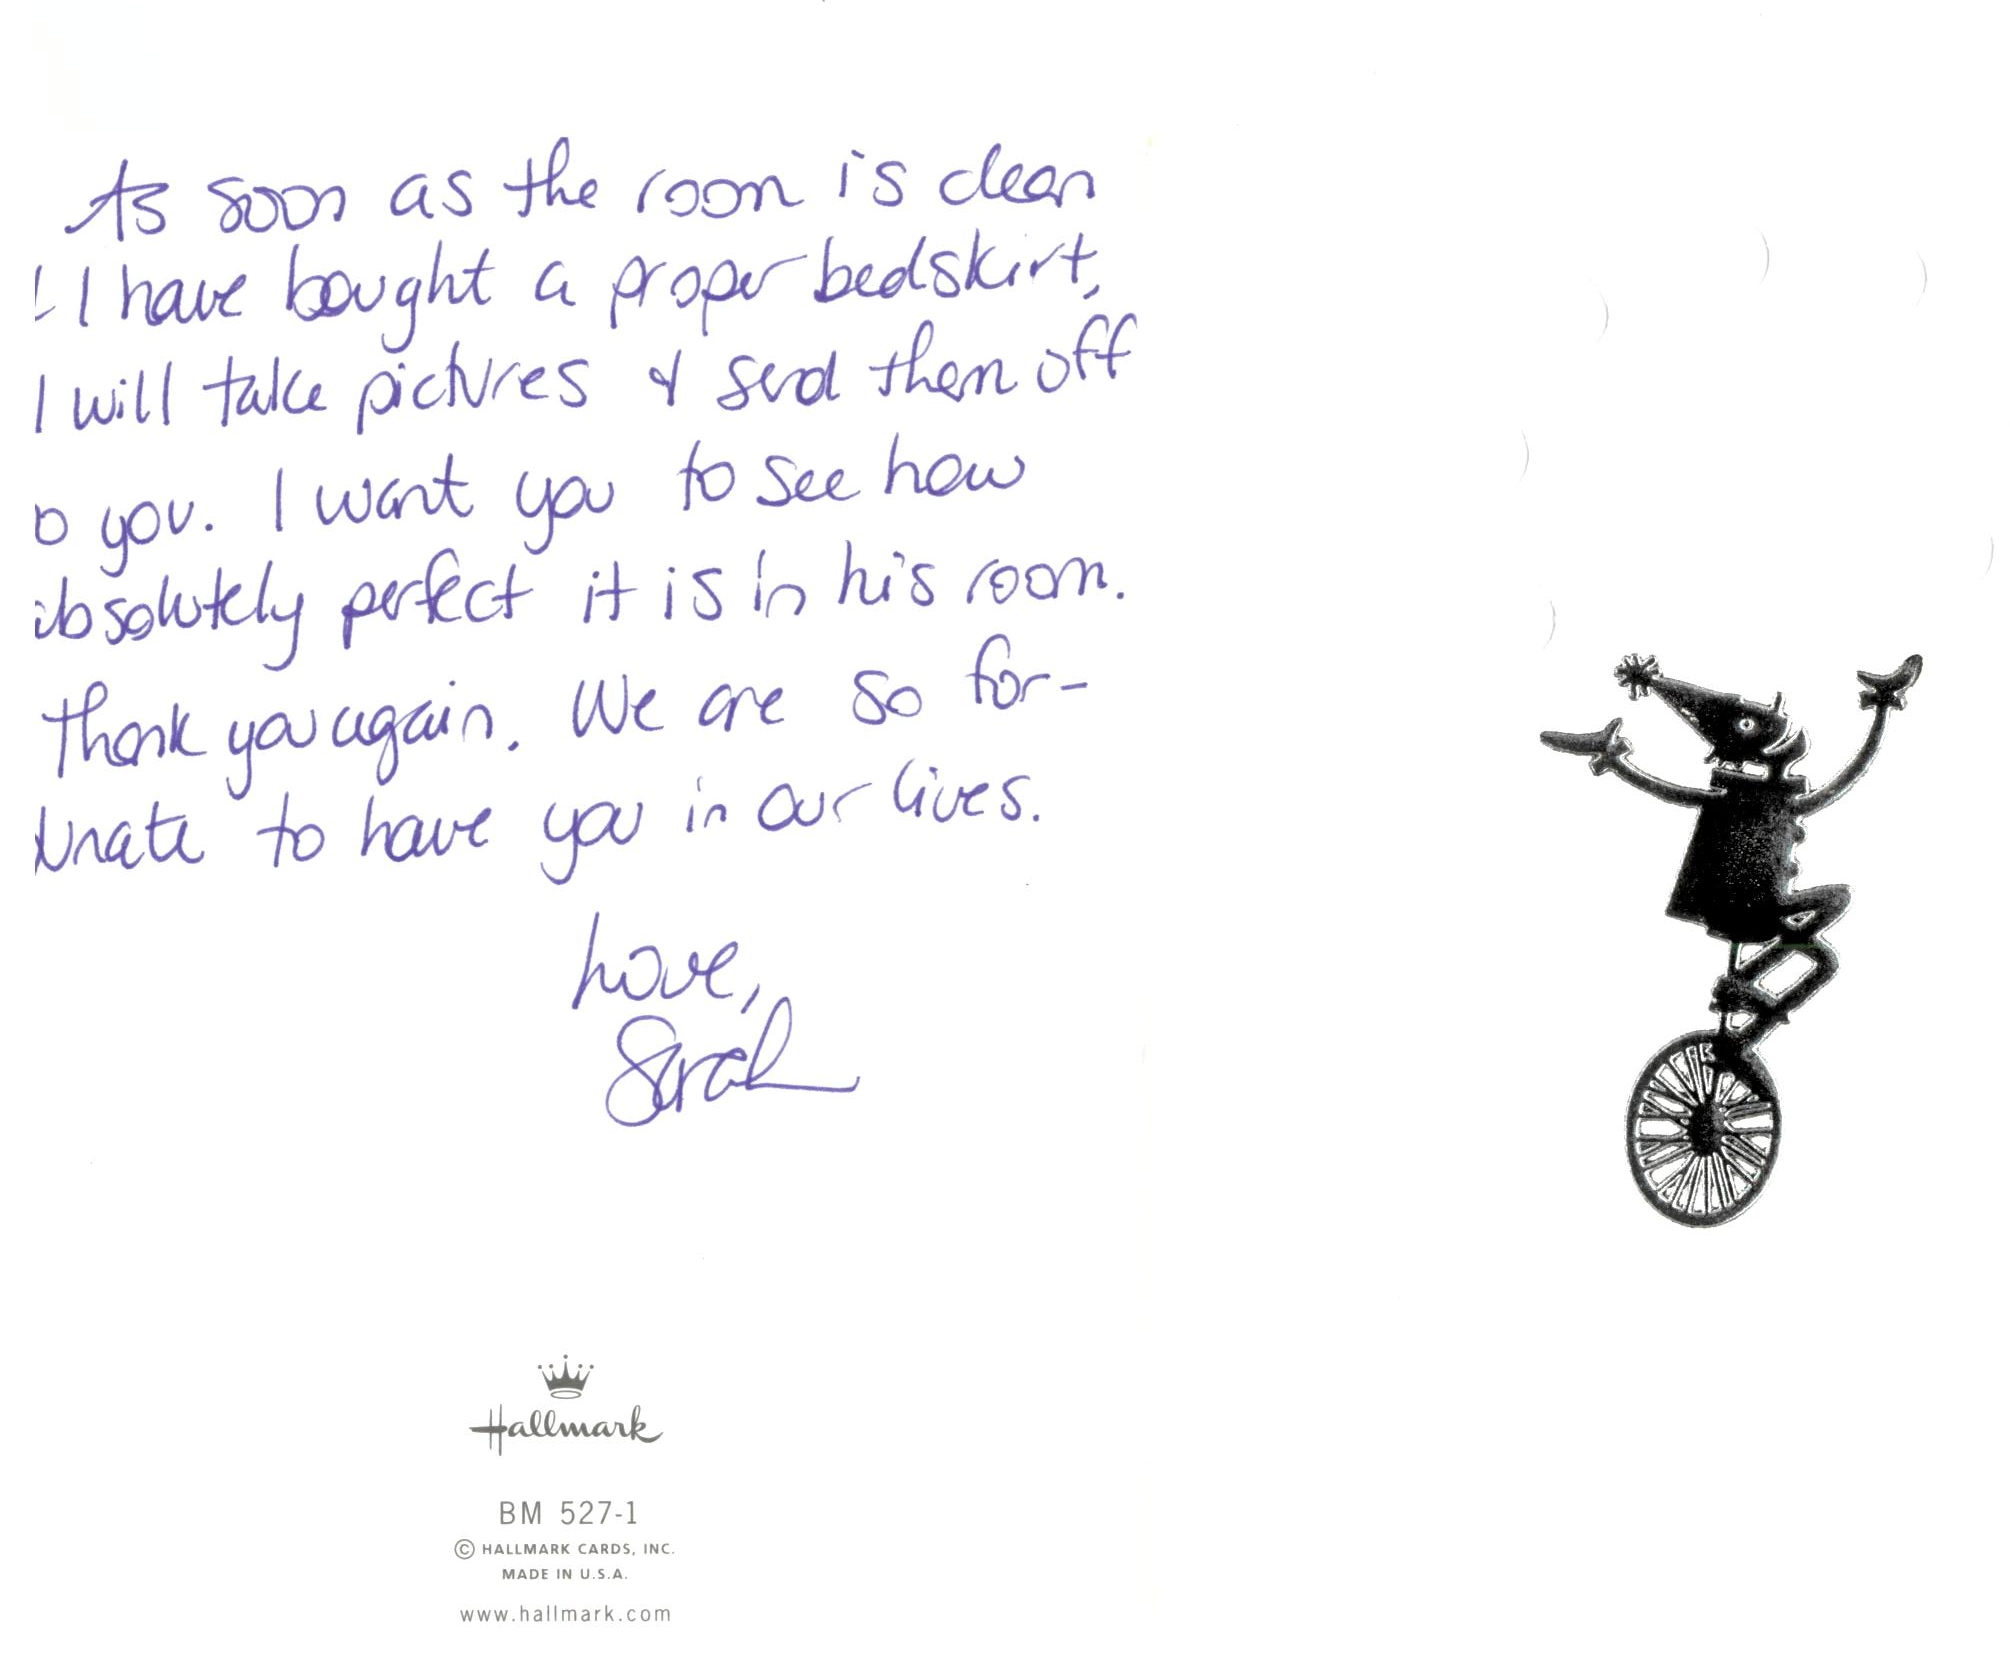 As soon as the room is clean
& I have bought a proper bedskirt,
I will take pictures & send them off
o you. I want you to see how
absolutely perfect it is in his room.
Thank you again. We are so for-
tunate to have you in our lives.
Love,
Sarah
Hallmark
BM 527-1
© HALLMARK CARDS, INC.
MADE IN U.S.A.
www.hallmark.com